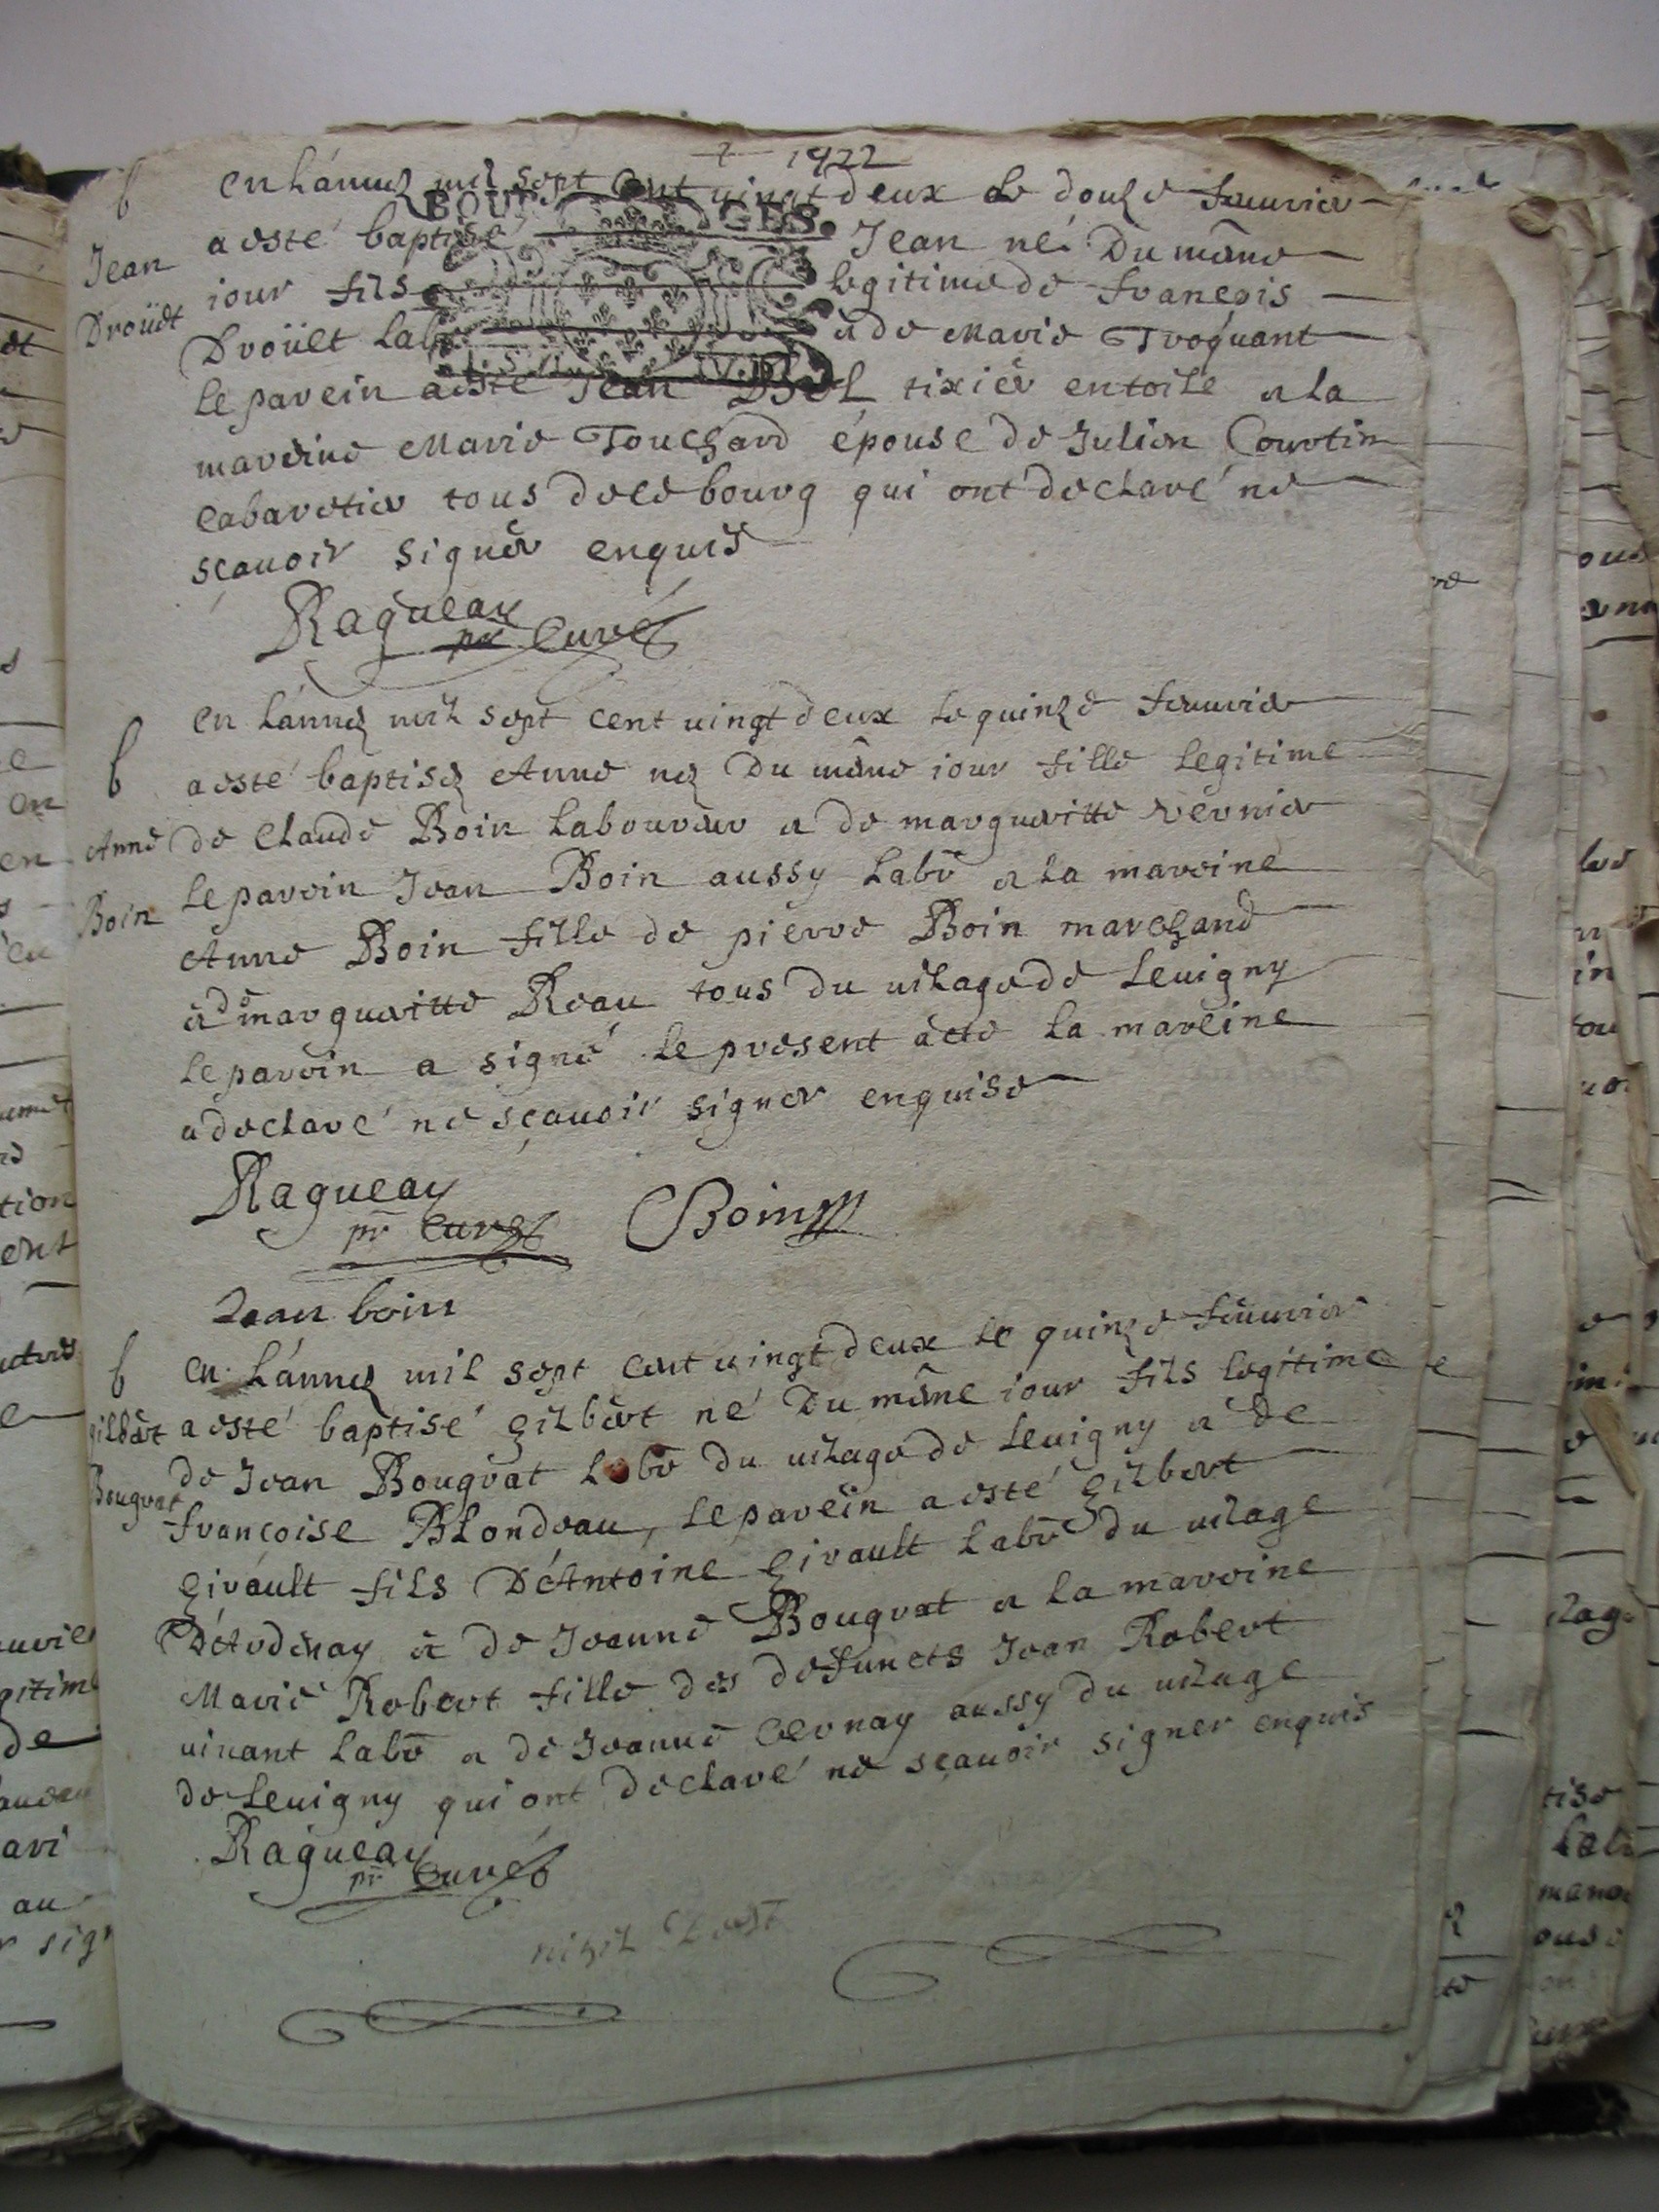 1722
b
en l'année mil sept cent uingt deux le douze feuurier
Jean
Droüet
a esté baptisé Jean né du même
iour fils legitime de francois
Droüet Lab et de Marie Troquant
BOUR GES.
le parein a esté Jean tixier en toile et la
mareine Marie Touchard épouse de Julien Courtin
cabaretier tous de ce bourg qui ont declaré ne
sçauoir signer enquis
Ragueau
pr curé
b
Anne
Boin
en l'année mil sept cent uingt deux le quinze feuurier
a esté baptisée Anne née du même iour fille legitime
de Claude Boin laboureur et de margueritte vernier
le parein Jean Boin aussy labr et la mareine
Anne Boin fille de pierre Boin marchand
et de margueritte Reau tous du uilage de Leuigny
le parein a signé le present acte la mareine
a declaré ne sçauoir signer enquise
Ragueau
pr curé
Boin
Jean boin
b
gilbert
Bougrat
en l'année mil sept cent uingt deux le quinze feuurier
a esté baptisé gilbert né du même iour fils legitime
de Jean Bougrat labr du uilage de Leuigny et de
francoise Blondeau, le parein a esté gilbert
girault fils D'Antoine girault labr du uilage
D'Ardenay et de Jeanne Bougrat et la mareine
Marie Robert fille des defuncts Jean Robert
uiuant labr et de Jeanne Cernay aussy du uilage
de Leuigny qui ont declaré ne sçauoir signer enquis
Ragueau
pr curé
nihil deest